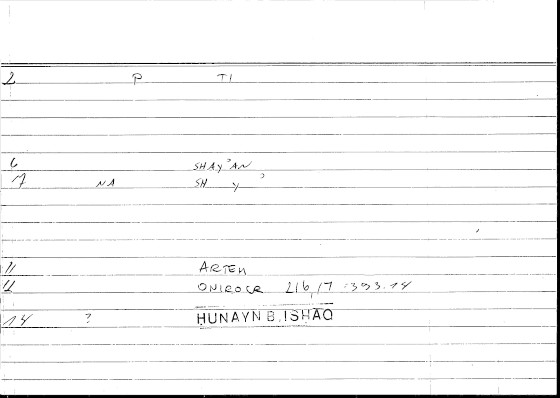 2 P TI
6 SHAY'AN
7 NA SH Y '
11 ARTEM
12 ONIROCR 216,17 :393.14
14 ? HUNAYN B. ISHAQ